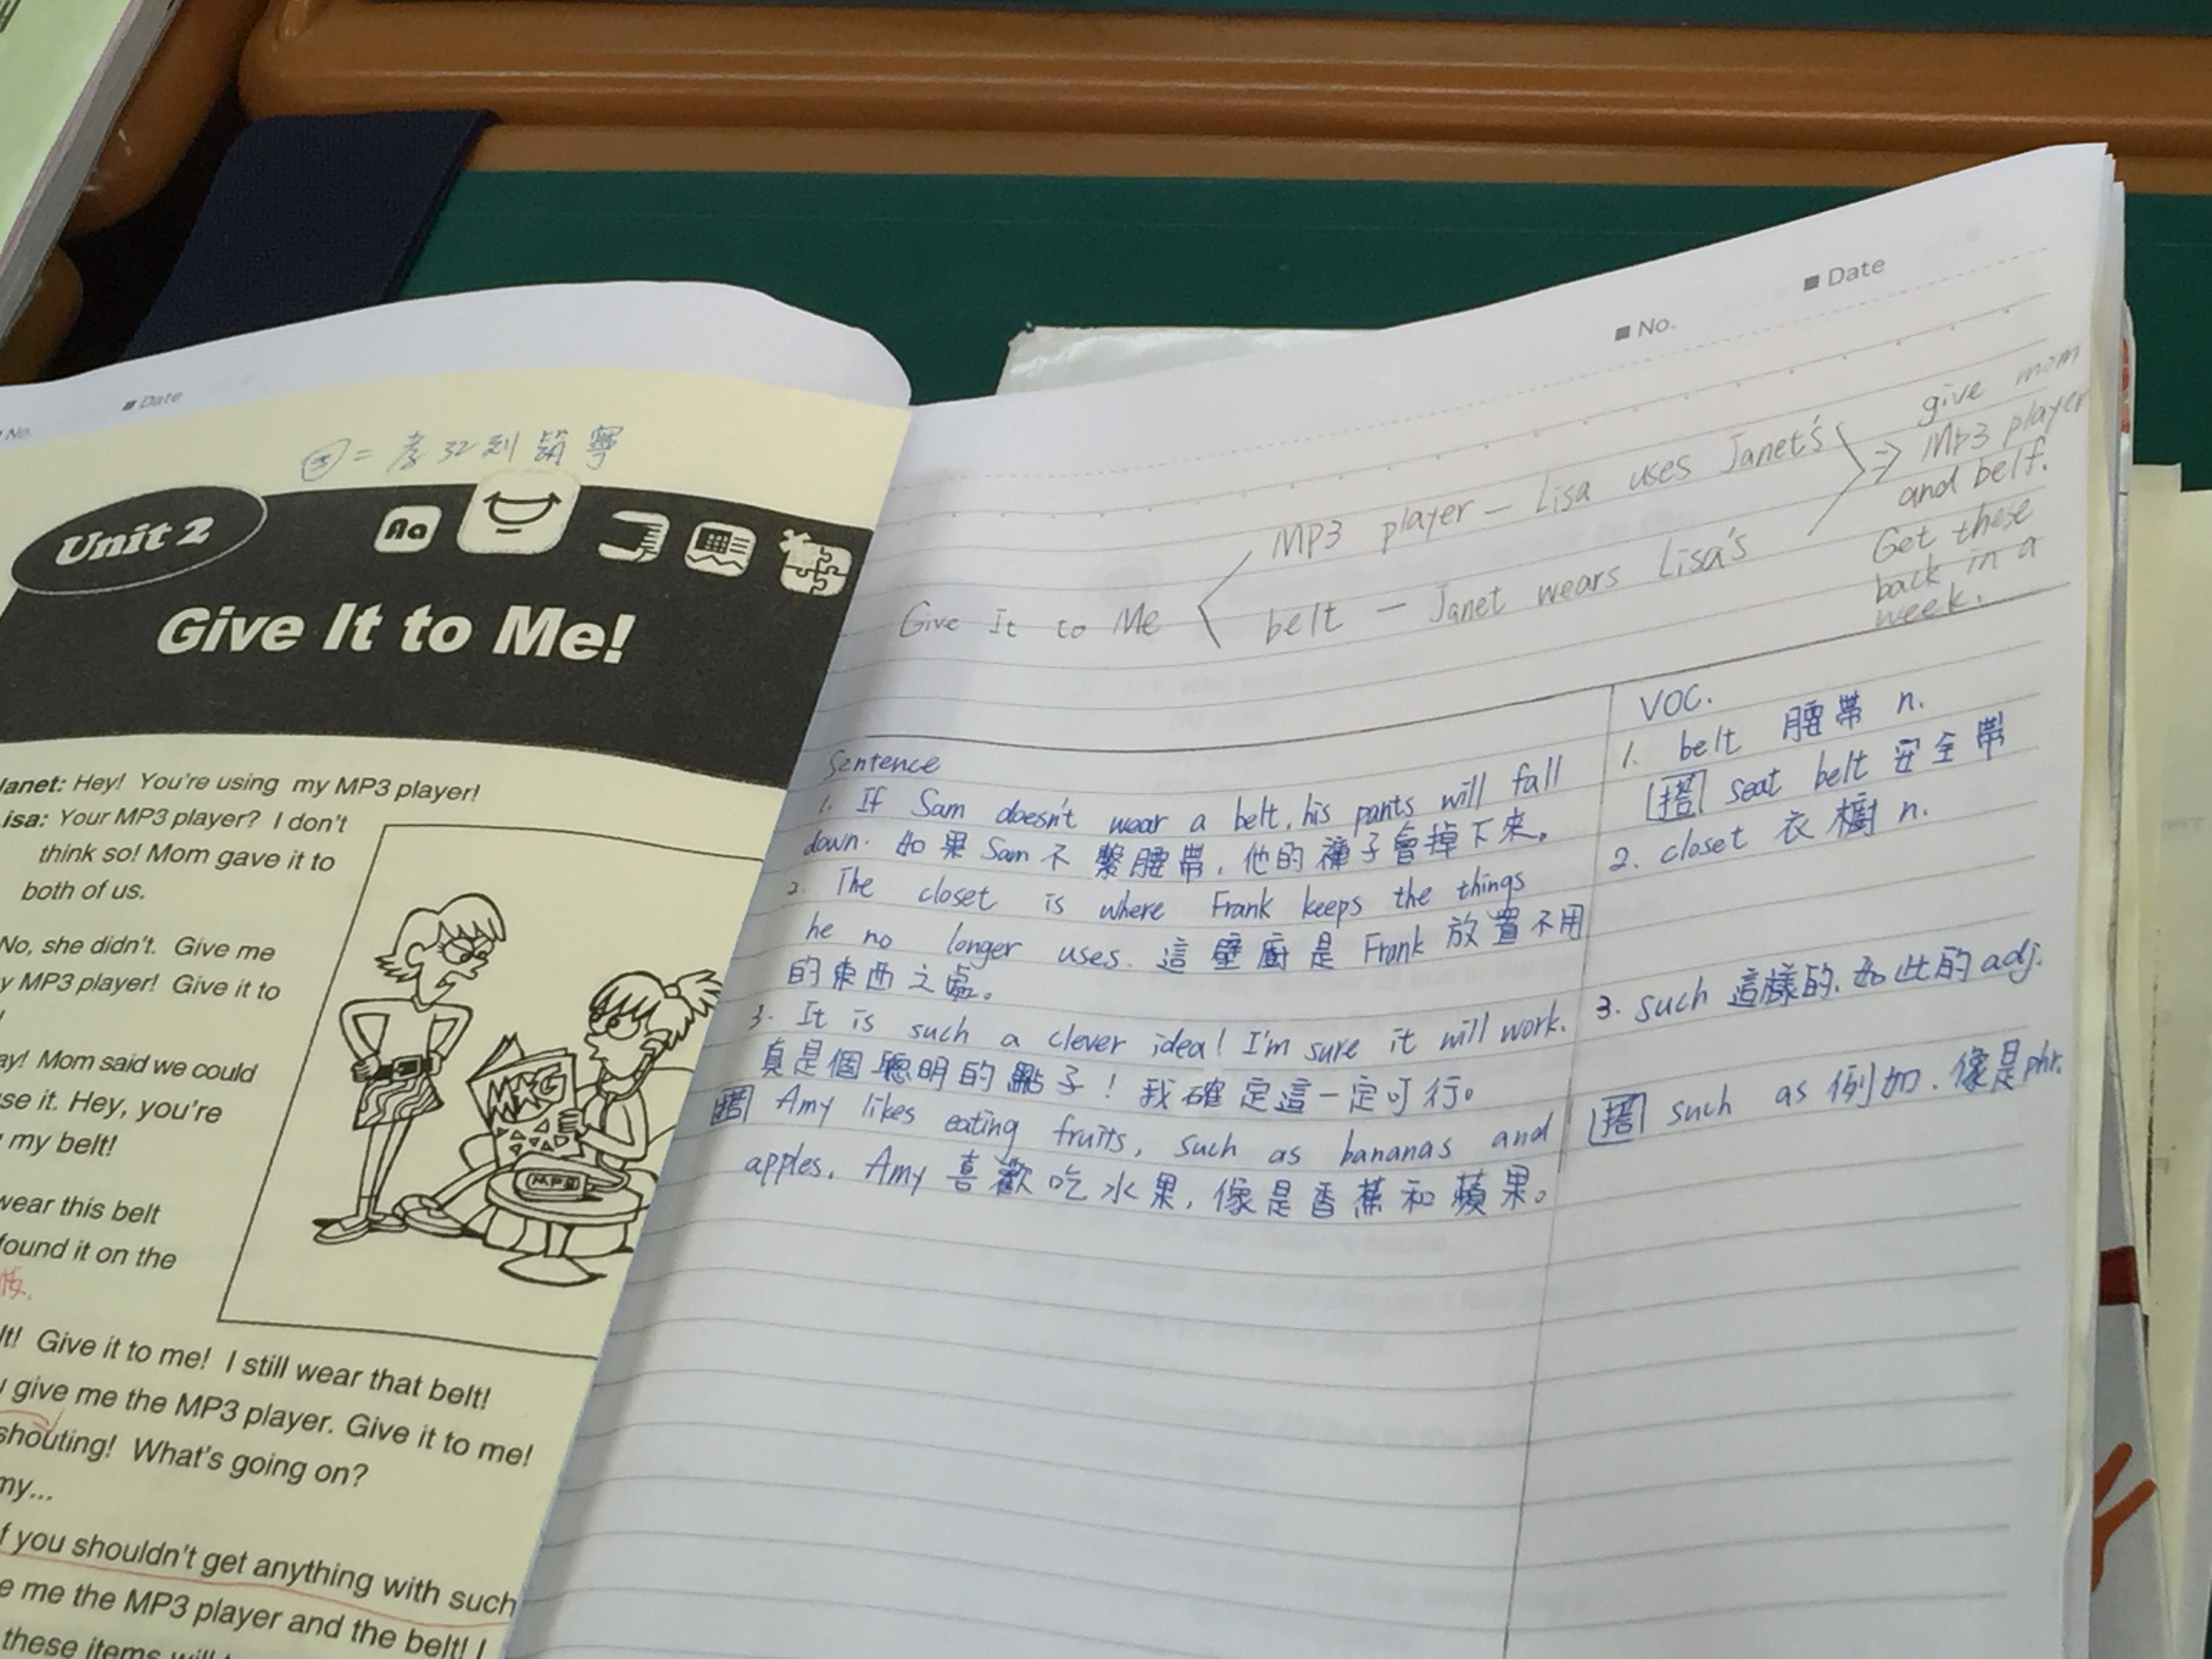 Date
No.
Unit 2
Aa
Give It to Me!
Janet: Hey! You're using my MP3 player!
Lisa: Your MP3 player? I don't
think so! Mom gave it to
both of us.
No, she didn't. Give me
MP3 player! Give it to
Mom said we could
it. Hey, you're
my belt!
wear this belt
found it on the
Give it to me! I still wear that belt!
give me the MP3 player. Give it to me!
shouting! What's going on?
you shouldn't get anything with such
me the MP3 player and the belt! I
these items
MP3
No.
Date
Give It to Me
MP3 player — Lisa uses Janet's
belt — Janet wears Lisa's
⇒ give mom
MP3 player
and belt.
Get these
back in a
week.
Sentence
1. If Sam doesn't wear a belt, his pants will fall
down. 如果 Sam 不繫腰帶，他的褲子會掉下來。
2. The closet is where Frank keeps the things
he no longer uses. 這壁廚是 Frank 放置不用
的東西之處。
3. It is such a clever idea! I'm sure it will work.
真是個聰明的點子！我確定這一定可行。
搭 Amy likes eating fruits, such as bananas and
apples. Amy 喜歡吃水果，像是香蕉和蘋果。
VOC.
1. belt 腰帶 n.
搭 seat belt 安全帶
2. closet 衣櫥 n.
3. such 這樣的、如此的 adj.
搭 such as 例如、像是 phr.